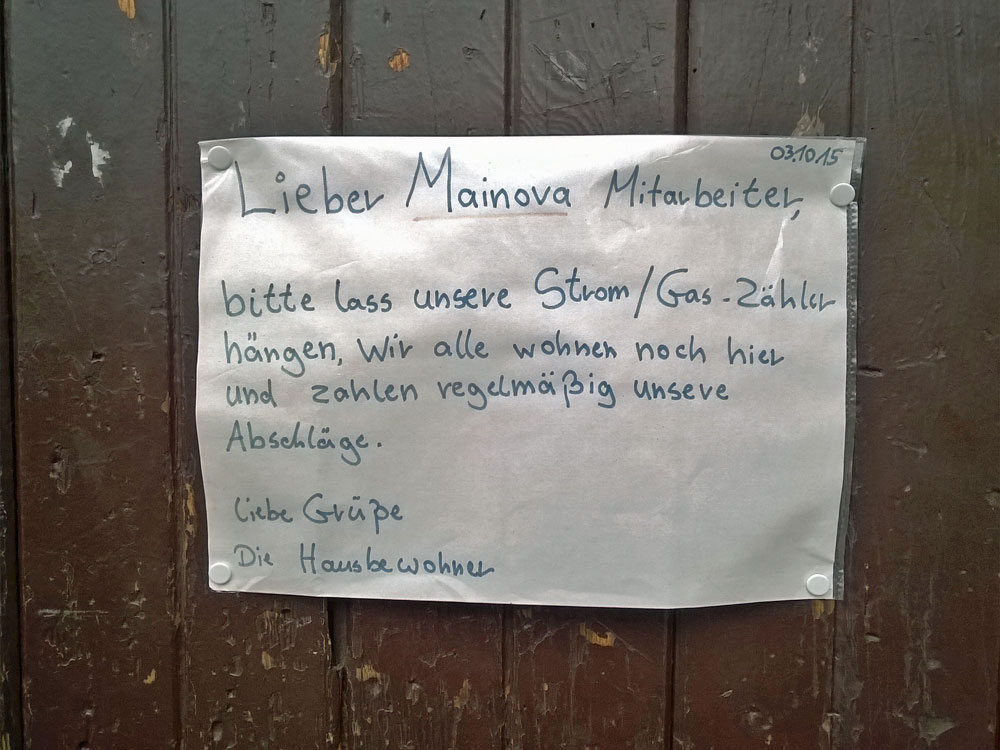 03.10.15
Lieber Mainova Mitarbeiter,
bitte lass unsere Strom/Gas-Zähler
hängen, Wir alle wohnen noch hier
und zahlen regelmäßig unsere
Abschläge.
Liebe Grüße
Die Hausbewohner